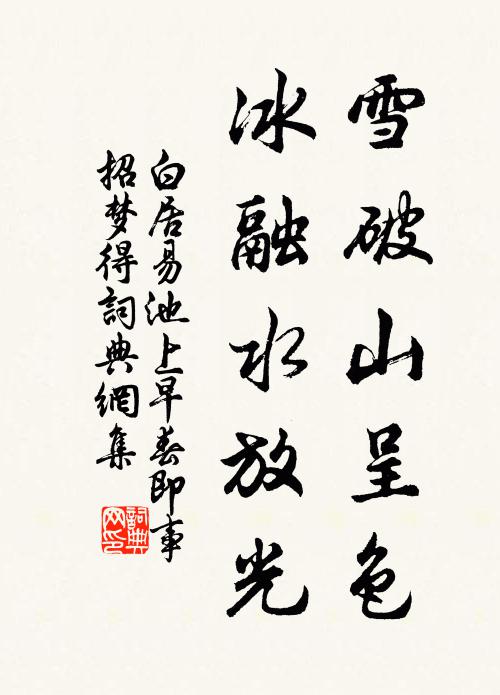 雪破山呈色
冰融水放光
白居易池上早春即事
招梦得詞典網集
詞典
网印